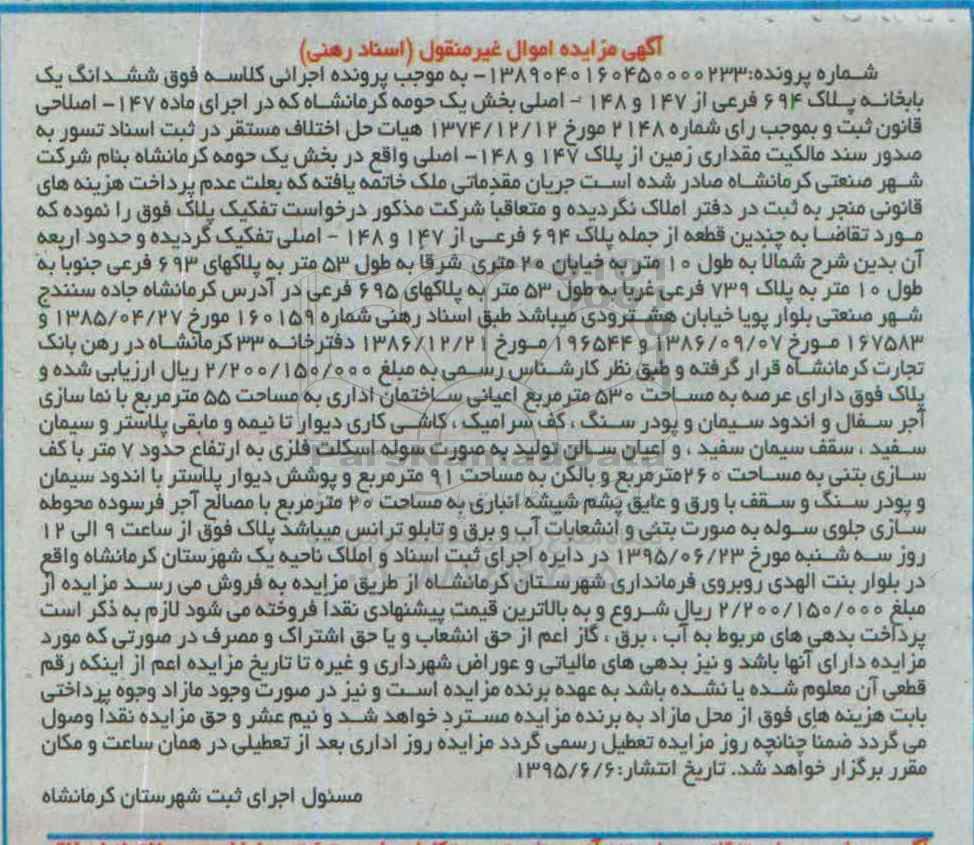 آگهی مزایده اموال غیرمنقول (اسناد رهنی)
شماره پرونده:۱۳۸۹۰۴۰۱۶۰۴۵۰۰۰۰۲۳۳- به موجب پرونده اجرائی کلاسه فوق ششدانگ یک
بابخانه پلاک ۶۹۴ فرعی از ۱۴۷ و ۱۴۸ - اصلی بخش یک حومه کرمانشاه که در اجرای ماده ۱۴۷- اصلاحی
قانون ثبت و بموجب رای شماره ۲۱۴۸ مورخ ۱۳۷۴/۱۲/۱۲ هیات حل اختلاف مستقر در ثبت اسناد تسور به
صدور سند مالکیت مقداری زمین از پلاک ۱۴۷ و ۱۴۸- اصلی واقع در بخش یک حومه کرمانشاه بنام شرکت
شهر صنعتی کرمانشاه صادر شده است جریان مقدماتی ملک خاتمه یافته که بعلت عدم پرداخت هزینه های
قانونی منجر به ثبت در دفتر املاک نگردیده و متعاقبا شرکت مذکور درخواست تفکیک پلاک فوق را نموده که
مورد تقاضا به چندین قطعه از جمله پلاک ۶۹۴ فرعی از ۱۴۷ و ۱۴۸ - اصلی تفکیک گردیده و حدود اربعه
آن بدین شرح شمالا به طول ۱۰ متر به خیابان ۲۰ متری شرقا به طول ۵۳ متر به پلاکهای ۶۹۳ فرعی جنوبا به
طول ۱۰ متر به پلاک ۷۳۹ فرعی غربا به طول ۵۳ متر به پلاکهای ۶۹۵ فرعی در آدرس کرمانشاه جاده سنندج
شهر صنعتی بلوار پویا خیابان هشترودی میباشد طبق اسناد رهنی شماره ۱۶۰۱۵۹ مورخ ۱۳۸۵/۰۴/۲۷ و
۱۶۷۵۸۳ مورخ ۱۳۸۶/۰۹/۰۷ و ۱۹۶۵۴۴ مورخ ۱۳۸۶/۱۲/۲۱ دفترخانه ۳۳ کرمانشاه در رهن بانک
تجارت کرمانشاه قرار گرفته و طبق نظر کارشناس رسمی به مبلغ ۲/۲۰۰/۱۵۰/۰۰۰ ریال ارزیابی شده و
پلاک فوق دارای عرصه به مساحت ۵۳۰ مترمربع اعیانی ساختمان اداری به مساحت ۵۵ مترمربع با نما سازی
آجر سفال و اندود سیمان و پودر سنگ ، کف سرامیک ، کاشی کاری دیوار تا نیمه و مابقی پلاستر و سیمان
سفید ، سقف سیمان سفید ، و اعیان سالن تولید به صورت سوله اسکلت فلزی به ارتفاع حدود ۷ متر با کف
سازی بتنی به مساحت ۲۶۰مترمربع و بالکن به مساحت ۹۱ مترمربع و پوشش دیوار پلاستر با اندود سیمان
و پودر سنگ و سقف با ورق و عایق پشم شیشه انباری به مساحت ۲۰ مترمربع با مصالح آجر فرسوده محوطه
سازی جلوی سوله به صورت بتنی و انشعابات آب و برق و تابلو ترانس میباشد پلاک فوق از ساعت ۹ الی ۱۲
روز سه شنبه مورخ ۱۳۹۵/۰۶/۲۳ در دایره اجرای ثبت اسناد و املاک ناحیه یک شهرستان کرمانشاه واقع
در بلوار بنت الهدی روبروی فرمانداری شهرستان کرمانشاه از طریق مزایده به فروش می رسد مزایده از
مبلغ ۲/۲۰۰/۱۵۰/۰۰۰ ریال شروع و به بالاترین قیمت پیشنهادی نقدا فروخته می شود لازم به ذکر است
پرداخت بدهی های مربوط به آب ، برق ، گاز اعم از حق انشعاب و یا حق اشتراک و مصرف در صورتی که مورد
مزایده دارای آنها باشد و نیز بدهی های مالیاتی و عوراض شهرداری و غیره تا تاریخ مزایده اعم از اینکه رقم
قطعی آن معلوم شده یا نشده باشد به عهده برنده مزایده است و نیز در صورت وجود مازاد وجوه پرداختی
بابت هزینه های فوق از محل مازاد به برنده مزایده مسترد خواهد شد و نیم عشر و حق مزایده نقدا وصول
می گردد ضمنا چنانچه روز مزایده تعطیل رسمی گردد مزایده روز اداری بعد از تعطیلی در همان ساعت و مکان
مقرر برگزار خواهد شد. تاریخ انتشار:۱۳۹۵/۶/۶
مسئول اجرای ثبت شهرستان کرمانشاه